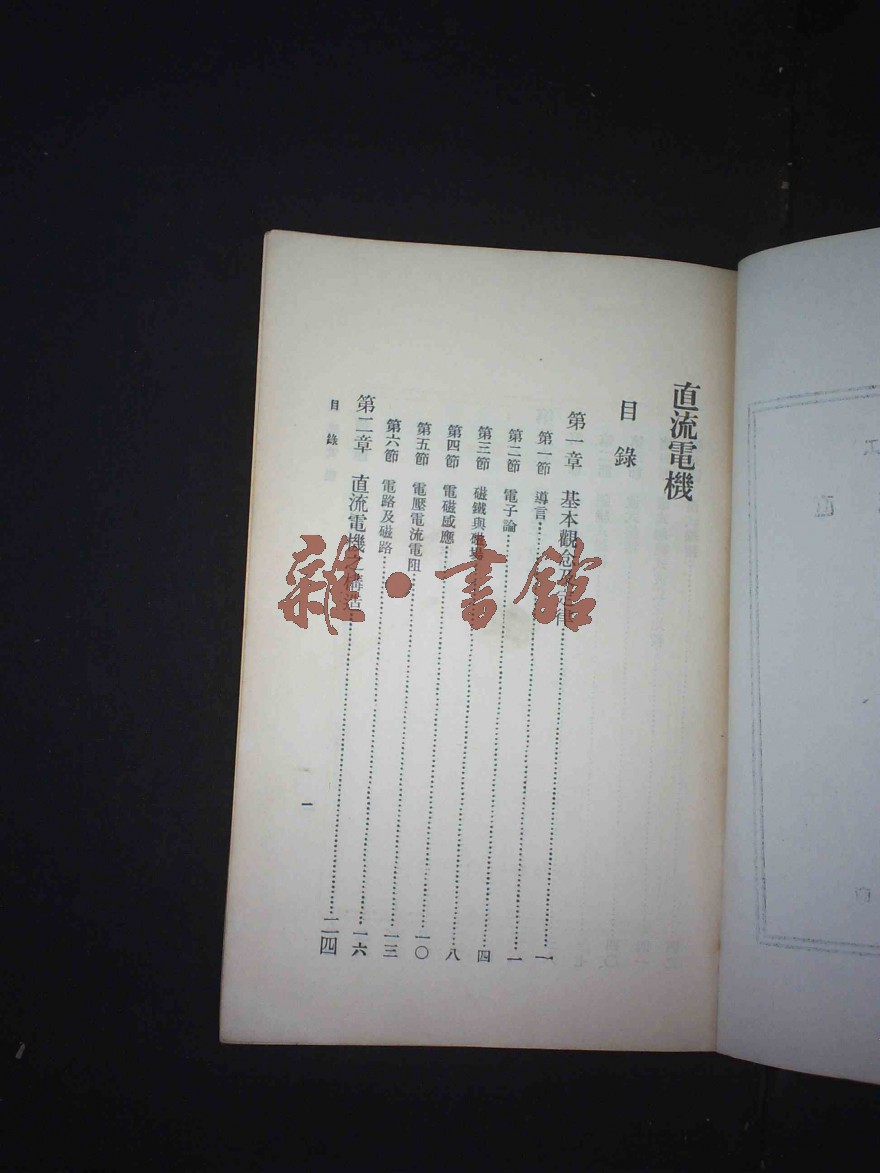 直流電機
目錄
第一章 基本觀念及定律……一
第一節 導言……一
第二節 電子論……四
第三節 磁鐵與磁場……八
第四節 電磁感應……一〇
第五節 電壓電流電阻……一三
第六節 電路及磁路……一六
第二章 直流電機之構造……二四
目錄
一
雜·書館